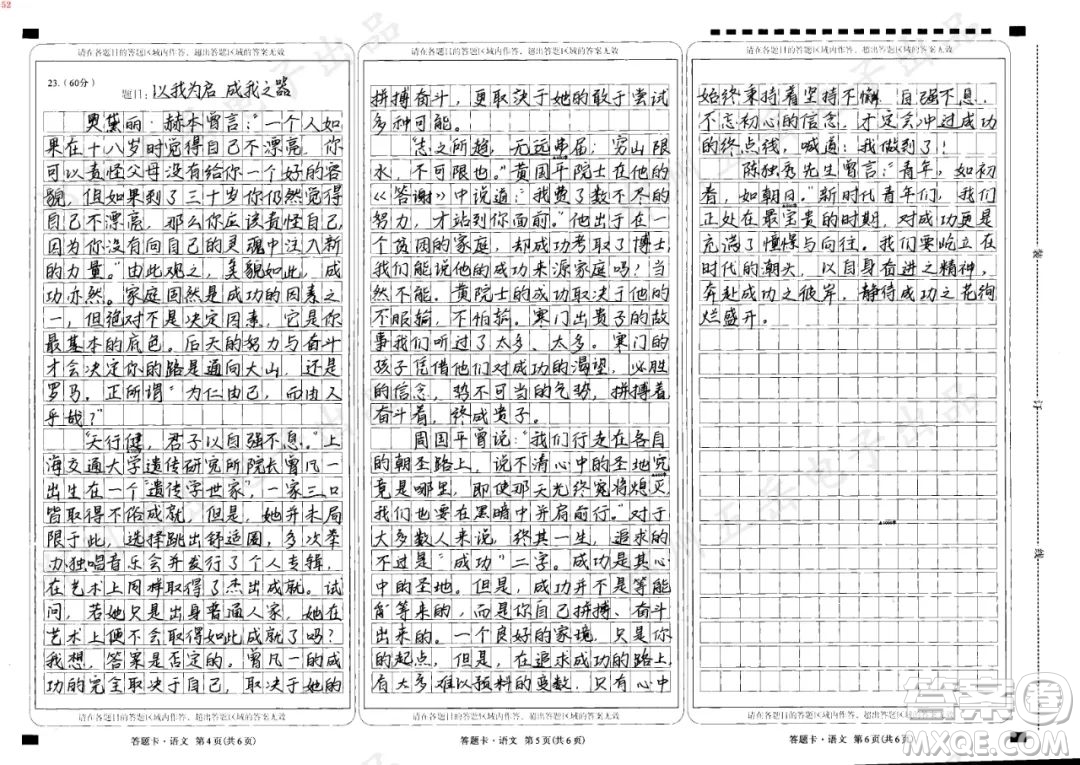 52
请在各题目的答题区域内作答，超出答题区域的答案无效
23.（60分）
题目：以我为启 成我之器
奥黛丽·赫本曾言：“一个人如
果在十八岁时觉得自己不漂亮，你
可以责怪父母没有给你一个好的容
貌，但如果到了三十岁你仍然觉得
自己不漂亮，那么你应该责怪自己，
因为你没有向自己的灵魂中注入新
的力量。”由此观之，美貌如此，成
功亦然。家庭固然是成功的因素之
一，但绝对不是决定因素，它是你
最基本的底色。后天的努力与奋斗
才会决定你的路是通向大山，还是
罗马。正所谓“为仁由己，而由人
乎哉？”
“天行健，君子以自强不息。”上
海交通大学遗传研究所院长曾凡一
出生在一个“遗传学世家”，一家三口
皆取得不俗成就，但是，她并未局
限于此，选择跳出舒适圈，多次举
办独唱音乐会并发行了个人专辑，
在艺术上同样取得了杰出成就。试
问，若她只是出身普通人家，她在
艺术上便不会取得如此成就了吗？
我想，答案是否定的。曾凡一的成
功的完全取决于自己，取决于她的
请在各题目的答题区域内作答，超出答题区域的答案无效
答题卡·语文 第4页(共6页)
请在各题目的答题区域内作答，超出答题区域的答案无效
拼搏奋斗，更取决于她的敢于尝试
多种可能。
“志之所趋，无远弗届；穷山限
水，不可限也。”黄国平院士在他的
《答谢》中说道：“我费了数不尽的
努力，才站到你面前。”他出于在一
个贫困的家庭，却成功考取了博士，
我们能说他的成功来源家庭吗？当
然不能。黄院士的成功取决于他的
不服输，不怕输。寒门出贵子的故
事我们听过了太多、太多。寒门的
孩子凭借他们对成功的渴望，必胜
的信念，势不可当的气势，拼搏着，
奋斗着，终成贵子。
周国平曾说：“我们行走在各自
的朝圣路上，说不清心中的圣地究
竟是哪里，即使那天光终究将熄灭，
我们也要在黑暗中并肩前行。”对于
大多数人来说，终其一生，追求的
不过是“成功”二字。成功是其心
中的圣地。但是，成功并不是等能
等来的，而是你自己拼搏、奋斗
出来的。一个良好的家境，只是你
的起点，但是，在追求成功的路上，
有太多难以预料的变数，只有心中
请在各题目的答题区域内作答，超出答题区域的答案无效
答题卡·语文 第5页(共6页)
请在各题目的答题区域内作答，超出答题区域的答案无效
始终秉持着坚持不懈，自强不息，
不忘初心的信念，才定会冲过成功
的终点线，喊道：我做到了！
陈独秀先生曾言：“青年，如初
春，如朝日。”新时代青年们，我们
正处在最宝贵的时期，对成功更是
充满了憧憬与向往。我们要屹立在
时代的潮头，以自身奋进之精神，
奔赴成功之彼岸，静待成功之花绚
烂盛开。
请在各题目的答题区域内作答，超出答题区域的答案无效
答题卡·语文 第6页(共6页)
装
订
线
答案圈
MXQE.COM